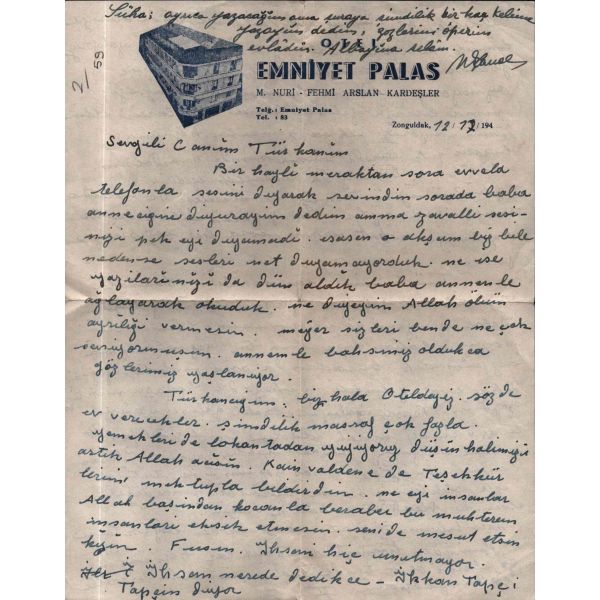 Süha; ayrıca yazacağım ama şuraya şimdilik bir kaç kelime
yazayım dedim, gözlerini öperim
evlâdım. Allahıma selim.
OTEL
EMNİYET PALAS
M. NURİ - FEHMİ ARSLAN KARDEŞLER
Telg.: Emniyet Palas
Tel. : 83
Zonguldak, 12/12/194
2/59
Sevgili Canım Türkanım
Bir hayli meraktan sora evvela
telefonla sesini duyarak sevindim sorada baba
anneciğine duyurayım dedim amma zavallı sesi-
nizi pek eyi duyamadı. esasen o akşam biz bile
nedense sesleri net duyamayorduk. ne ise
yazılarınızı da dün aldık baba annemle
ağlayarak okuduk. ne diyeyim Allah ölüm
ayrılığı vermesin. meğer sizleri bende ne çok
seviyormuşum. annemle bahsiniz oldukca
gözlerimiz yaşlanıyor.
Türkancığım. biz hala Oteldeyiz. sözde
ev verecekler. şimdilik masraf çok fazla.
yemekleri de lokantadan yiyiyoruz düşün halimizi
artık Allah acısın. Kain valdene de Teşekkür
lerimi mektupla bildirdim. ne eyi insanlar
Allah başından kocanla beraber bu muhterem
insanları eksik etmesin. seni de mesut etsin
Füsun. İhsanı hiç unutmayor.
İhsan nerede dedikce - İhkan Tapçi
Tapçim diyor